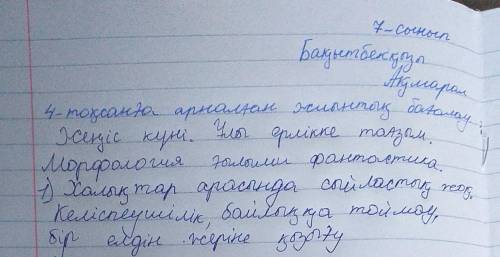 7-сынып
Бақытбекқызы
Ақмарал
4-тоқсанға арналған жиынтық бағалау.
Жеңіс күні. Ұлы ерлікке тағзым.
Морфология ғылыми фантастика.
1) Халықтар арасында сыйластық жоқ.
Келіспеушілік, байлыққа тоймау,
бір елдін жеріне қызығу